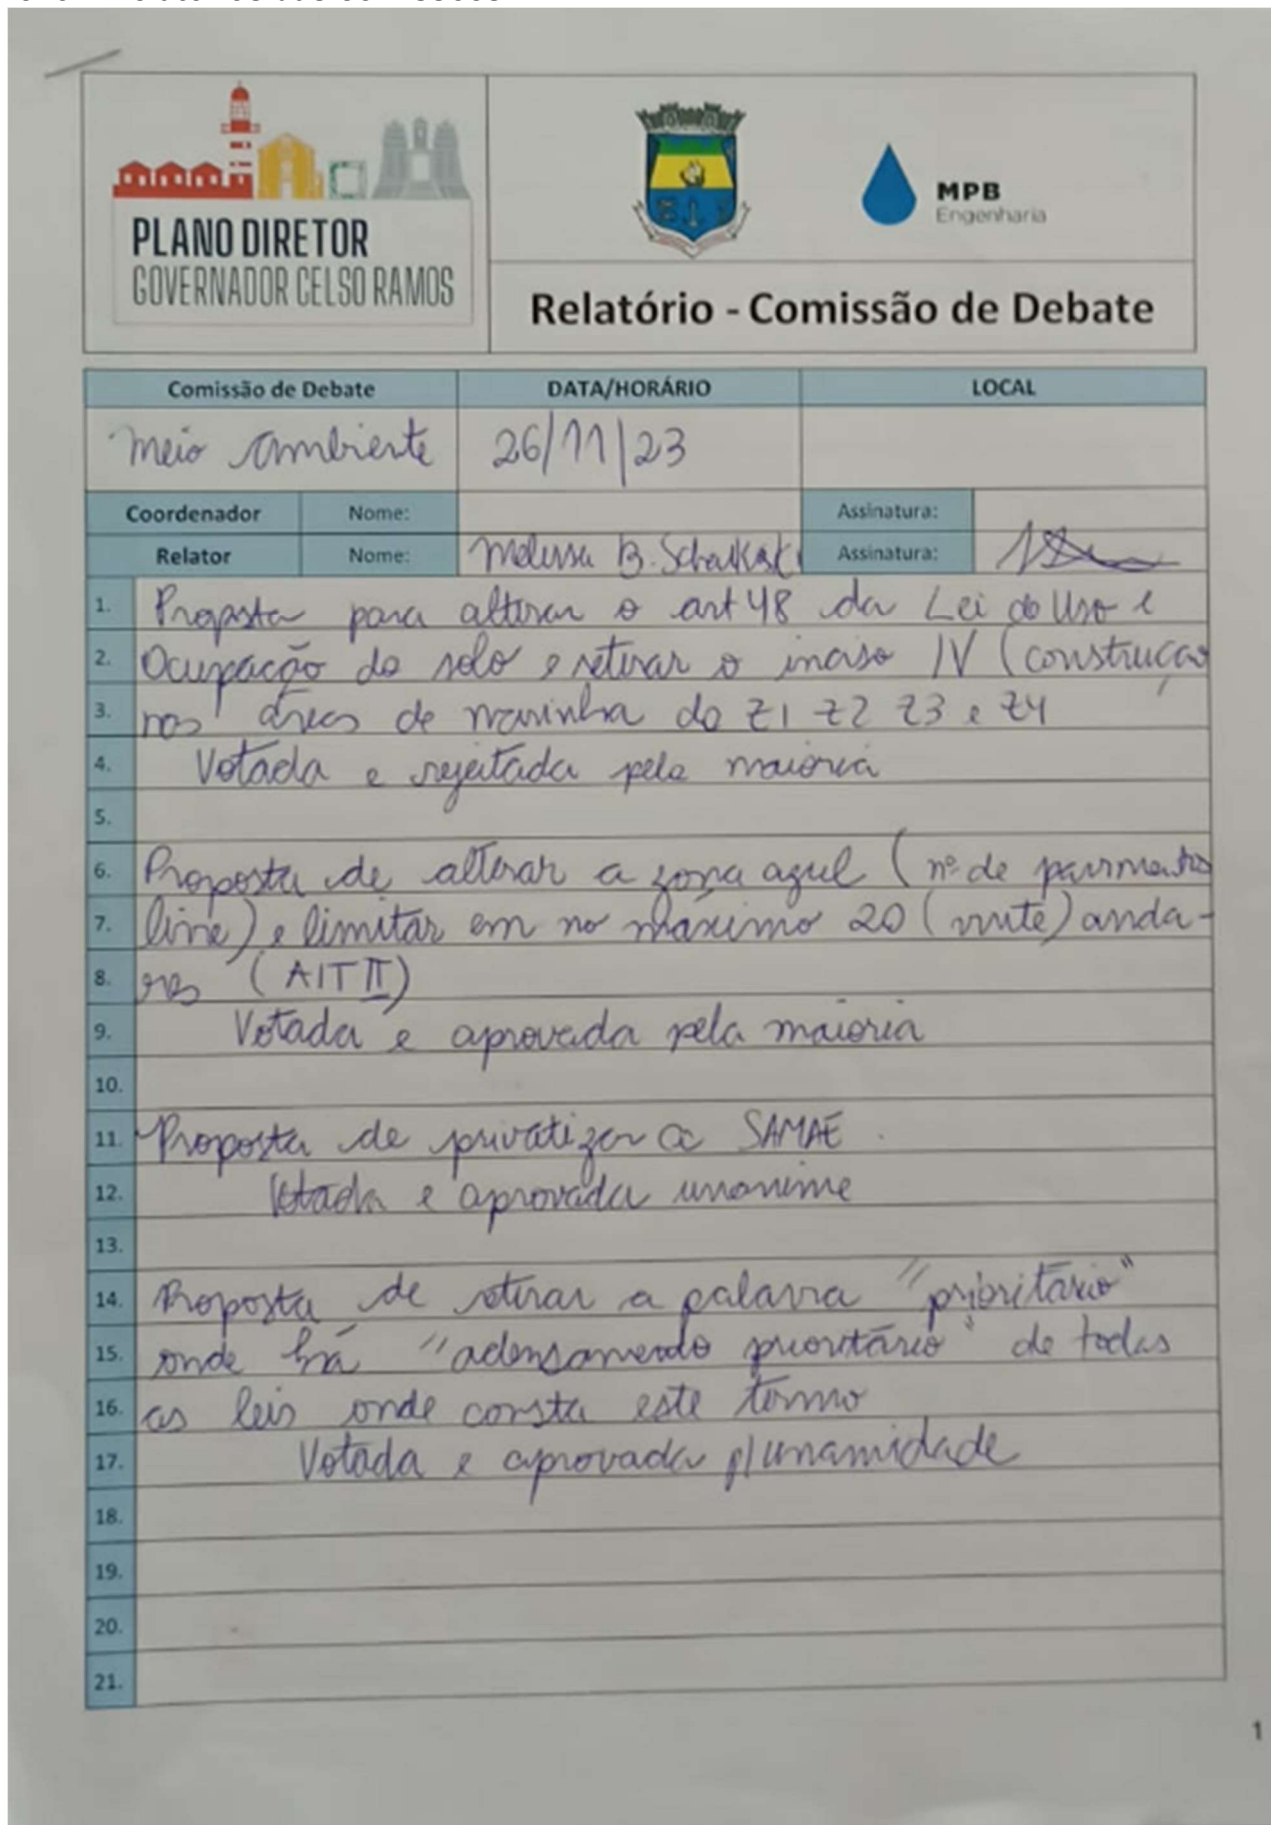 PLANO DIRETOR
GOVERNADOR CELSO RAMOS
MPB
Engenharia
Relatório - Comissão de Debate
Comissão de Debate DATA/HORÁRIO LOCAL
Meio Ambiente 26/11/23
Coordenador Nome: Assinatura:
Relator Nome: Melissa B. Assinatura:
1. Proposta para alterar o art 48 da Lei do Uso e
2. Ocupação do solo e retirar o inciso IV (construção
3. nas áreas de marinha do Z1 Z2 Z3 e Z4
4. Votada e rejeitada pela maioria
5.
6. Proposta de alterar a zona azul (nº de pavimentos
7. livre) e limitar em no máximo 20 (vinte) anda-
8. res (AIT II)
9. Votada e aprovada pela maioria
10.
11. Proposta de privatizar a SAMAE.
12. Votada e aprovada unanime
13.
14. Proposta de retirar a palavra "prioritário"
15. onde há "adensamento prioritário" de todas
16. as leis onde consta este termo
17. Votada e aprovada p/ unamidade
18.
19.
20.
21.
1